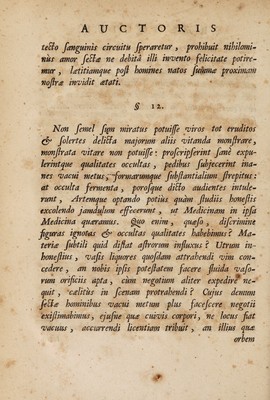 AUCTORIS
tecto sanguinis circuitu speraretur, prohibuit nihilomi-
nus amor sectæ ne debitâ illi invento felicitate potire-
mur, lætitiamque post homines natos summæ proximam
nostræ invidit ætati.
§ 12.
Non semel sum miratus potuisse viros tot eruditos
& solertes delicta majorum aliis vitanda monstrare,
monstrata vitare non potuisse: proscripserint sanè expu-
lerintque qualitates occultas, pedibus subjecerint ina-
nes vacui metus, formarumque substantialium strepitus:
at occulta fermenta, porosque dicto audientes intule-
runt, Artemque optando potius quàm studiis honestis
excolendo jamdudum effecerunt, ut Medicinam in ipsa
Medicina quæramus. Quo enim, quæso, discrimine
figuras ignotas & occultas qualitates habebimus? Ma-
teria subtili quid distat astrorum influxus? Utrum in-
honestius, vasis liquores quosdam attrahendi vim con-
cedere, an nobis ipsis potestatem facere fluida vaso-
rum orificiis apta, cum negotium aliter expedire ne-
quit, cælitùs in scenam protrahendi? Cujus demum
sectæ hominibus vacui metum plus facescere negotii
existimabimus, ejusne quæ cuivis corpori, ne locus fiat
vacuus, accurrendi licentiam tribuit, an illius quæ
orbem